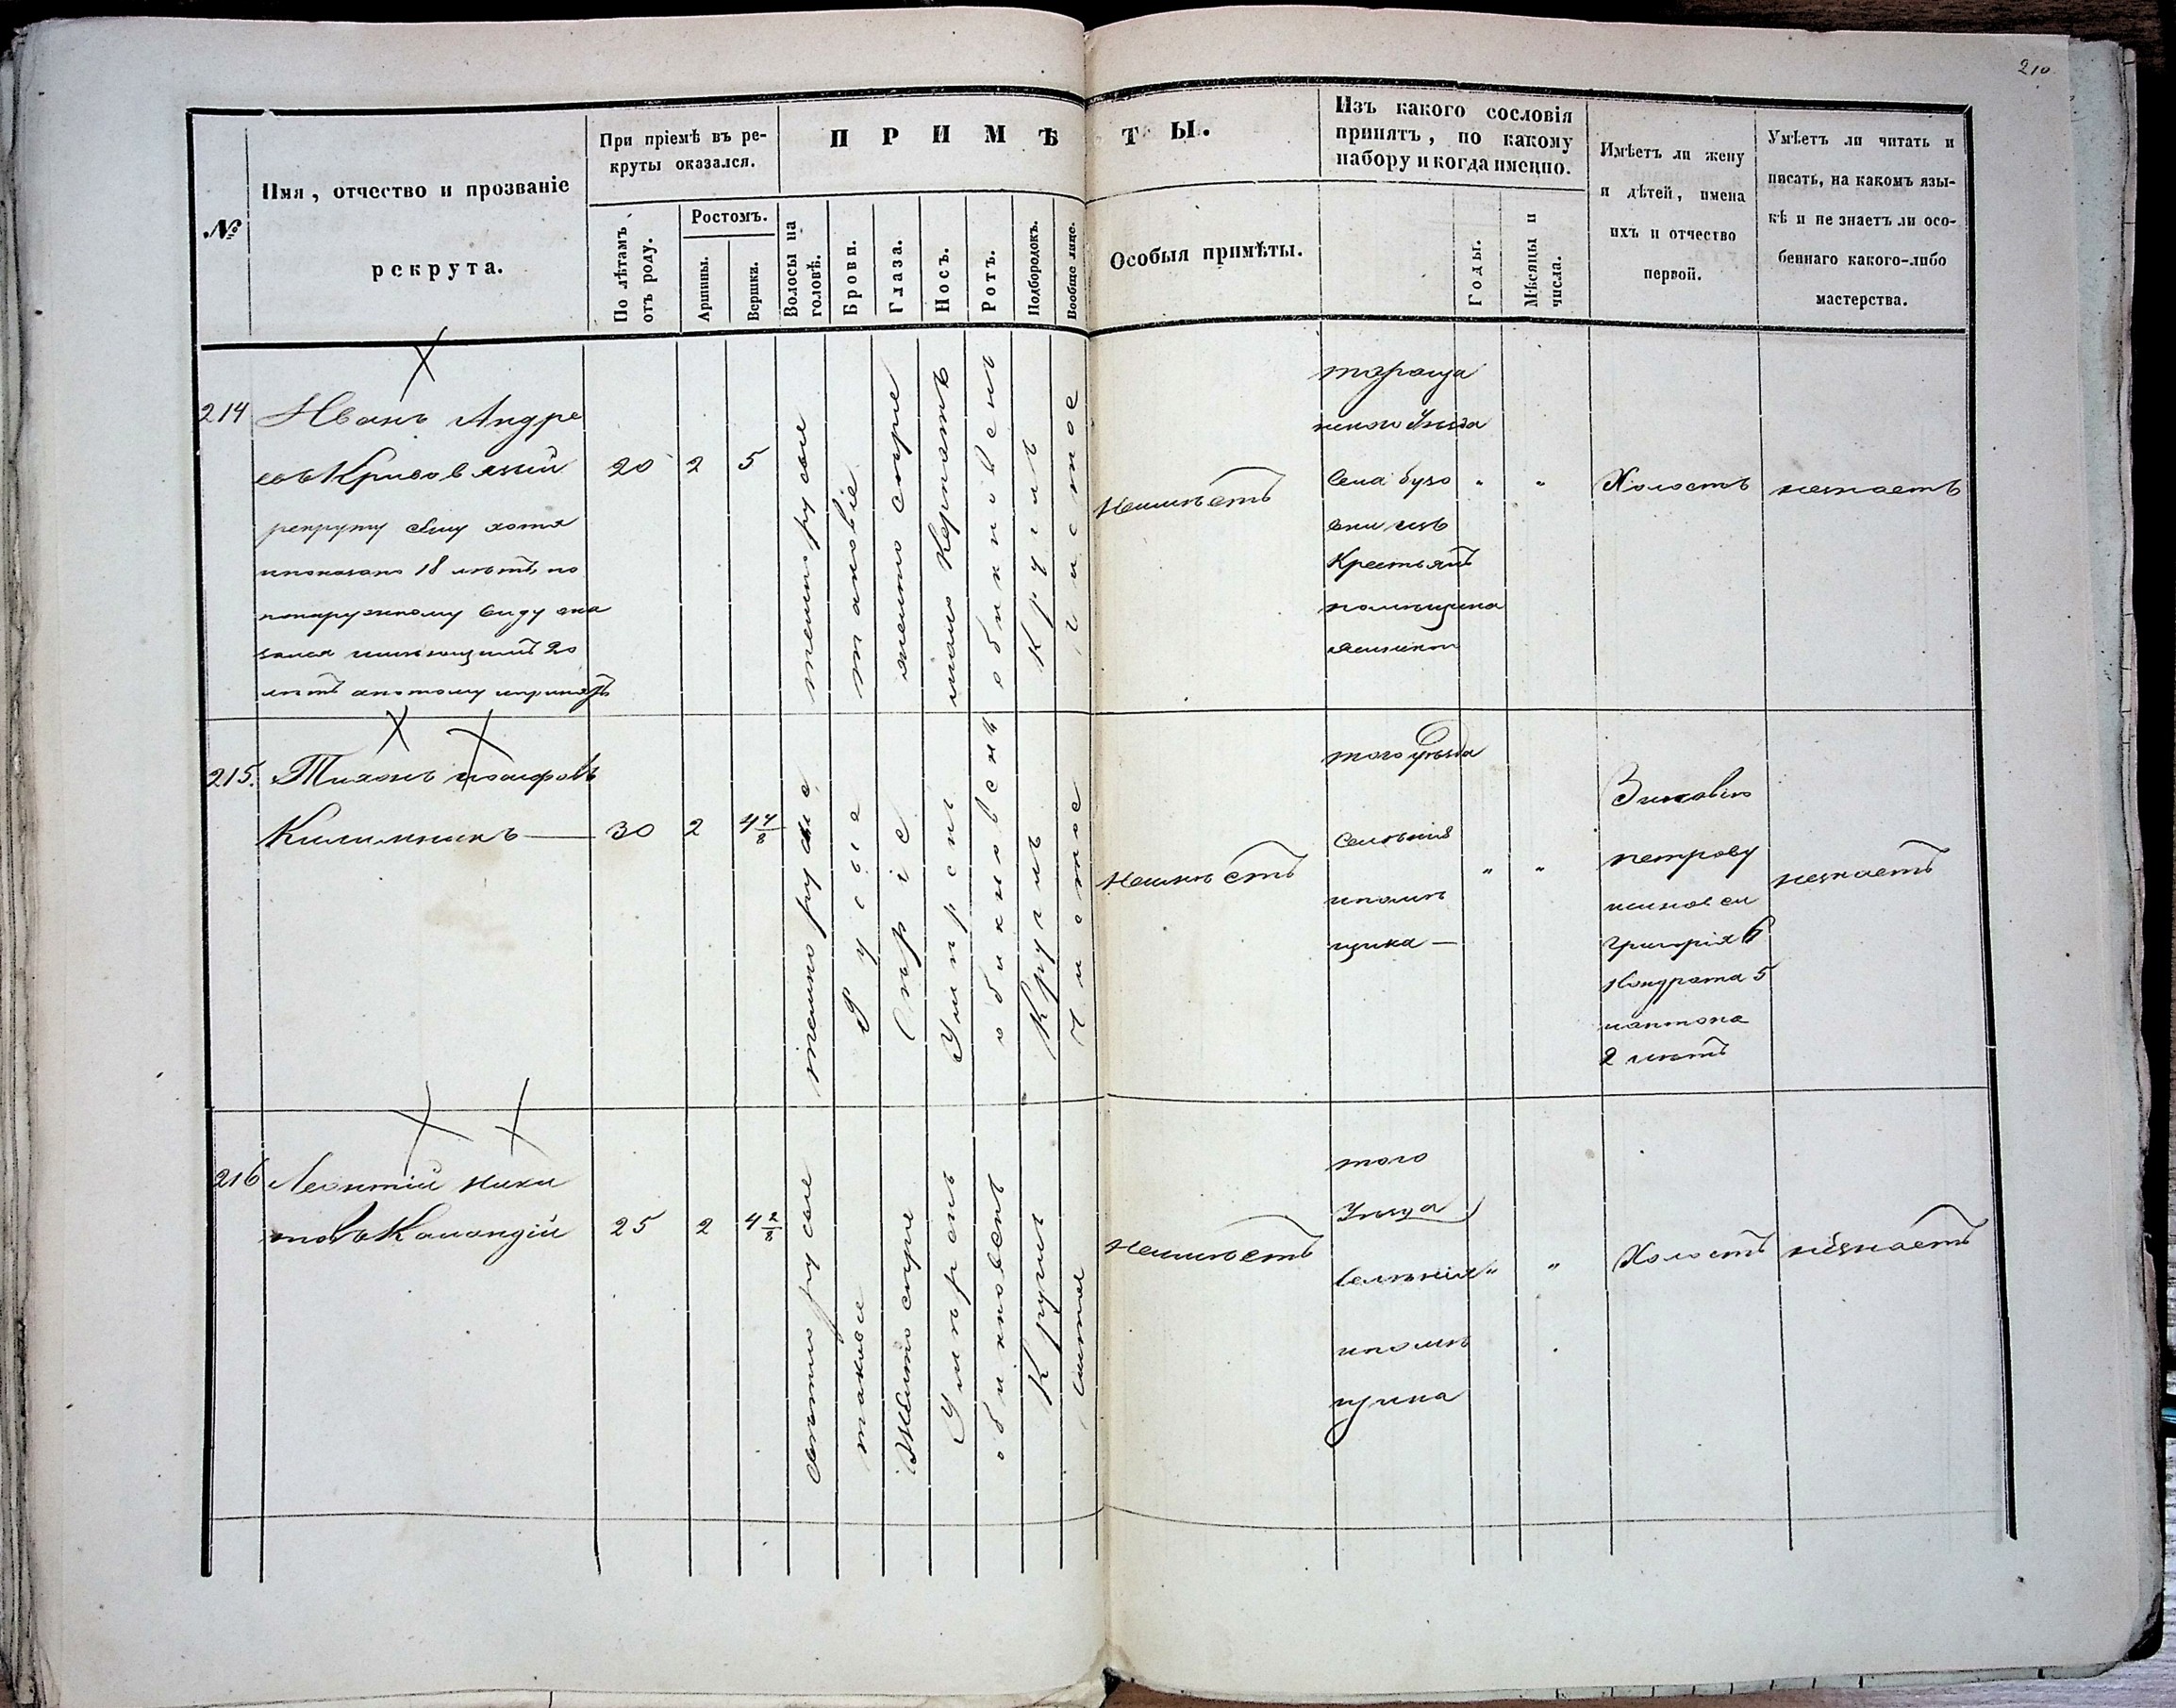 210
№
Имя, отчество и прозваніе
рекрута.
При пріемѣ въ ре-
круты оказался.
По лѣтамъ
отъ роду.
Ростомъ.
Аршины.
Вершки.
ПРИМѢТЫ.
Волосы на
головѣ.
Брови.
Глаза.
Носъ.
Ротъ.
Подбородокъ.
Вообще лице.
Особыя примѣты.
Изъ какого сословія
принятъ, по какому
набору и когда именно.
Годы.
Мѣсяцы и
числа.
Имѣетъ ли жену
и дѣтей, имена
ихъ и отчество
первой.
Умѣетъ ли читать и
писать, на какомъ язы-
кѣ и не знаетъ ли осо-
беннаго какого-либо
мастерства.
214
Иванъ Андре
евъ Кривовязий
рекруту сему хотя
ипоказано 18 летъ но
понаружному виду ока
зался имеющимъ 20
летъ апотому ипринятъ
20
2
5
темно русые
таковіе
желто серые
мало Керпатъ
обикновенъ
Круглъ
чистое
Неимѣетъ
тараща
нского Уезда
Села бузо
вки изъ
Крестьянъ
помещика
"
"
Холостъ
незнаетъ
215.
Тихонъ иосифовъ
Килимникъ —
30
2
4 4/8
темно русые
Русые
Серіе
Умеренъ
обикновенъ
Круглъ
Чистое
Неимеетъ
того уезда
Селенія
ипоме
щика —
"
"
Зиновію
петрову
исинов ея
Григорія 6
Кондрата 5
иантона
2 летъ
незнаетъ
216
Леонтий Ники
товъ Каландій
25
2
4 2/8
светло русые
таковіе
Желто серые
Умеренъ
обикновенъ
Круглъ
чистое
Неимеетъ
того
Уезда
Селенія
ипоме
щика
"
"
Холостъ
незнаетъ